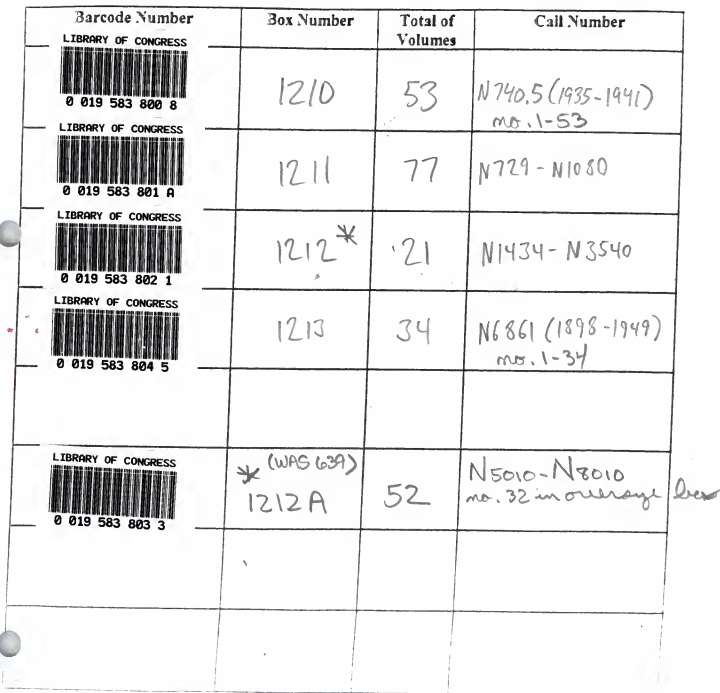 Barcode Number Box Number Total of Volumes Call Number
LIBRARY OF CONGRESS
0 019 583 800 8
1210 53 N740.5 (1935-1941)
no. 1-53
LIBRARY OF CONGRESS
0 019 583 801 A
1211 77 N729 - N1080
LIBRARY OF CONGRESS
0 019 583 802 1
1212* 21 N1434 - N3540
LIBRARY OF CONGRESS
0 019 583 804 5
1213 34 N6861 (1898-1949)
no. 1-34
LIBRARY OF CONGRESS
0 019 583 803 3
* (WAS 639)
1212A 52 N5010-N8010
no. 32 in oversize box